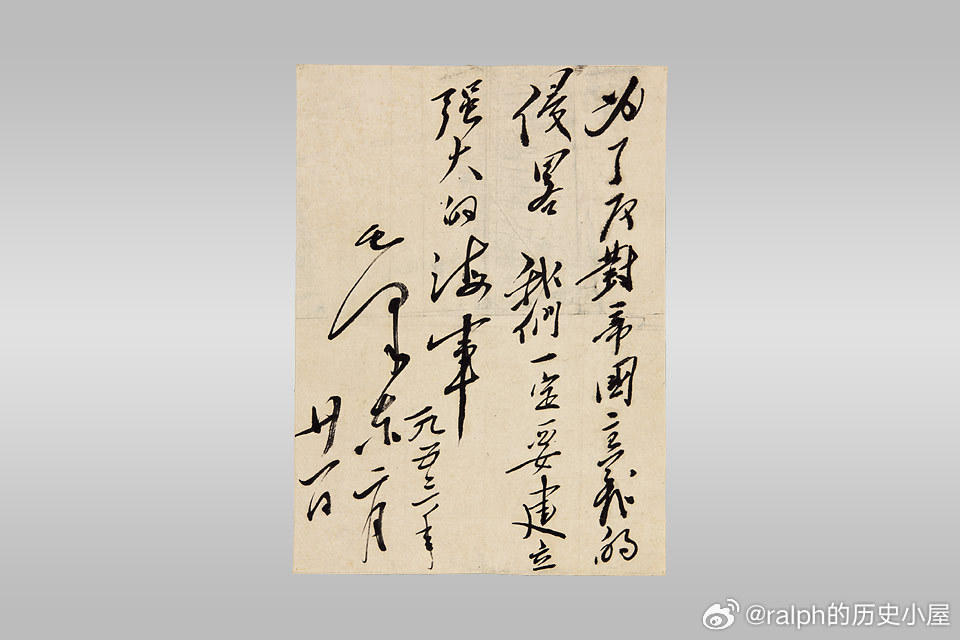 为了反對帝國主義的
侵畧我們一定要建立
强大的海军
毛泽东
一九五三年
二月
廿一日
@ralph的历史小屋